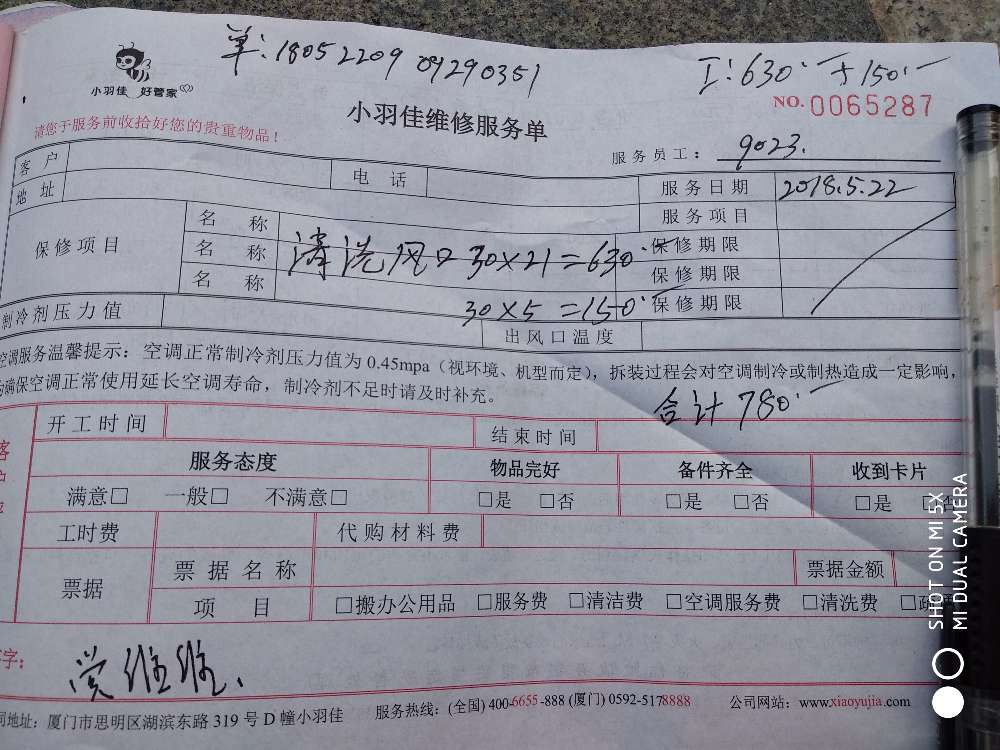 单: 18052209 09290351
工: 630.一 + 150.一
小羽佳 好管家
NO. 0065287
请您于服务前收拾好您的贵重物品！
小羽佳维修服务单
服务员工: 9023.
客 户
电 话
服务日期 2018.5.22
地 址
服务项目
保修项目
名 称
名 称 清洗风口 30×21=630.一
保修期限
名 称
保修期限
30×5 =150.一
保修期限
制冷剂压力值
出风口温度
空调服务温馨提示: 空调正常制冷剂压力值为 0.45mpa（视环境、机型而定），拆装过程会对空调制冷或制热造成一定影响，
为确保空调正常使用延长空调寿命，制冷剂不足时请及时补充。
合计 780.一
客户
开工时间
结束时间
服务态度
物品完好
备件齐全
收到卡片
满意□ 一般□ 不满意□
□是 □否
□是 □否
□是 □否
工时费
代购材料费
票据
票据名称
票据金额
项 目
□搬办公用品 □服务费 □清洁费 □空调服务费 □清洗费
字:
维维
司地址: 厦门市思明区湖滨东路 319 号 D 幢小羽佳
服务热线: (全国) 400-6655-888 (厦门) 0592-5178888
公司网站: www.xiaoyujia.com
SHOT ON MI 5X
MI DUAL CAMERA